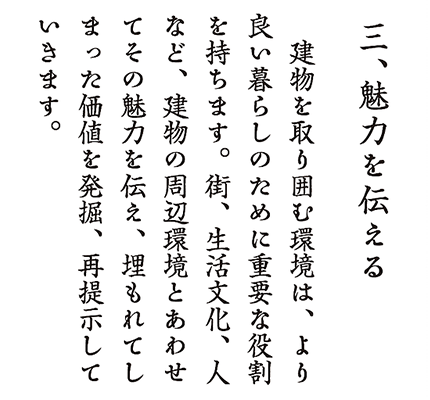 三、魅力を伝える
建物を取り囲む環境は、より
良い暮らしのために重要な役割
を持ちます。街、生活文化、人
など、建物の周辺環境とあわせ
てその魅力を伝え、埋もれてし
まった価値を発掘、再提示して
いきます。